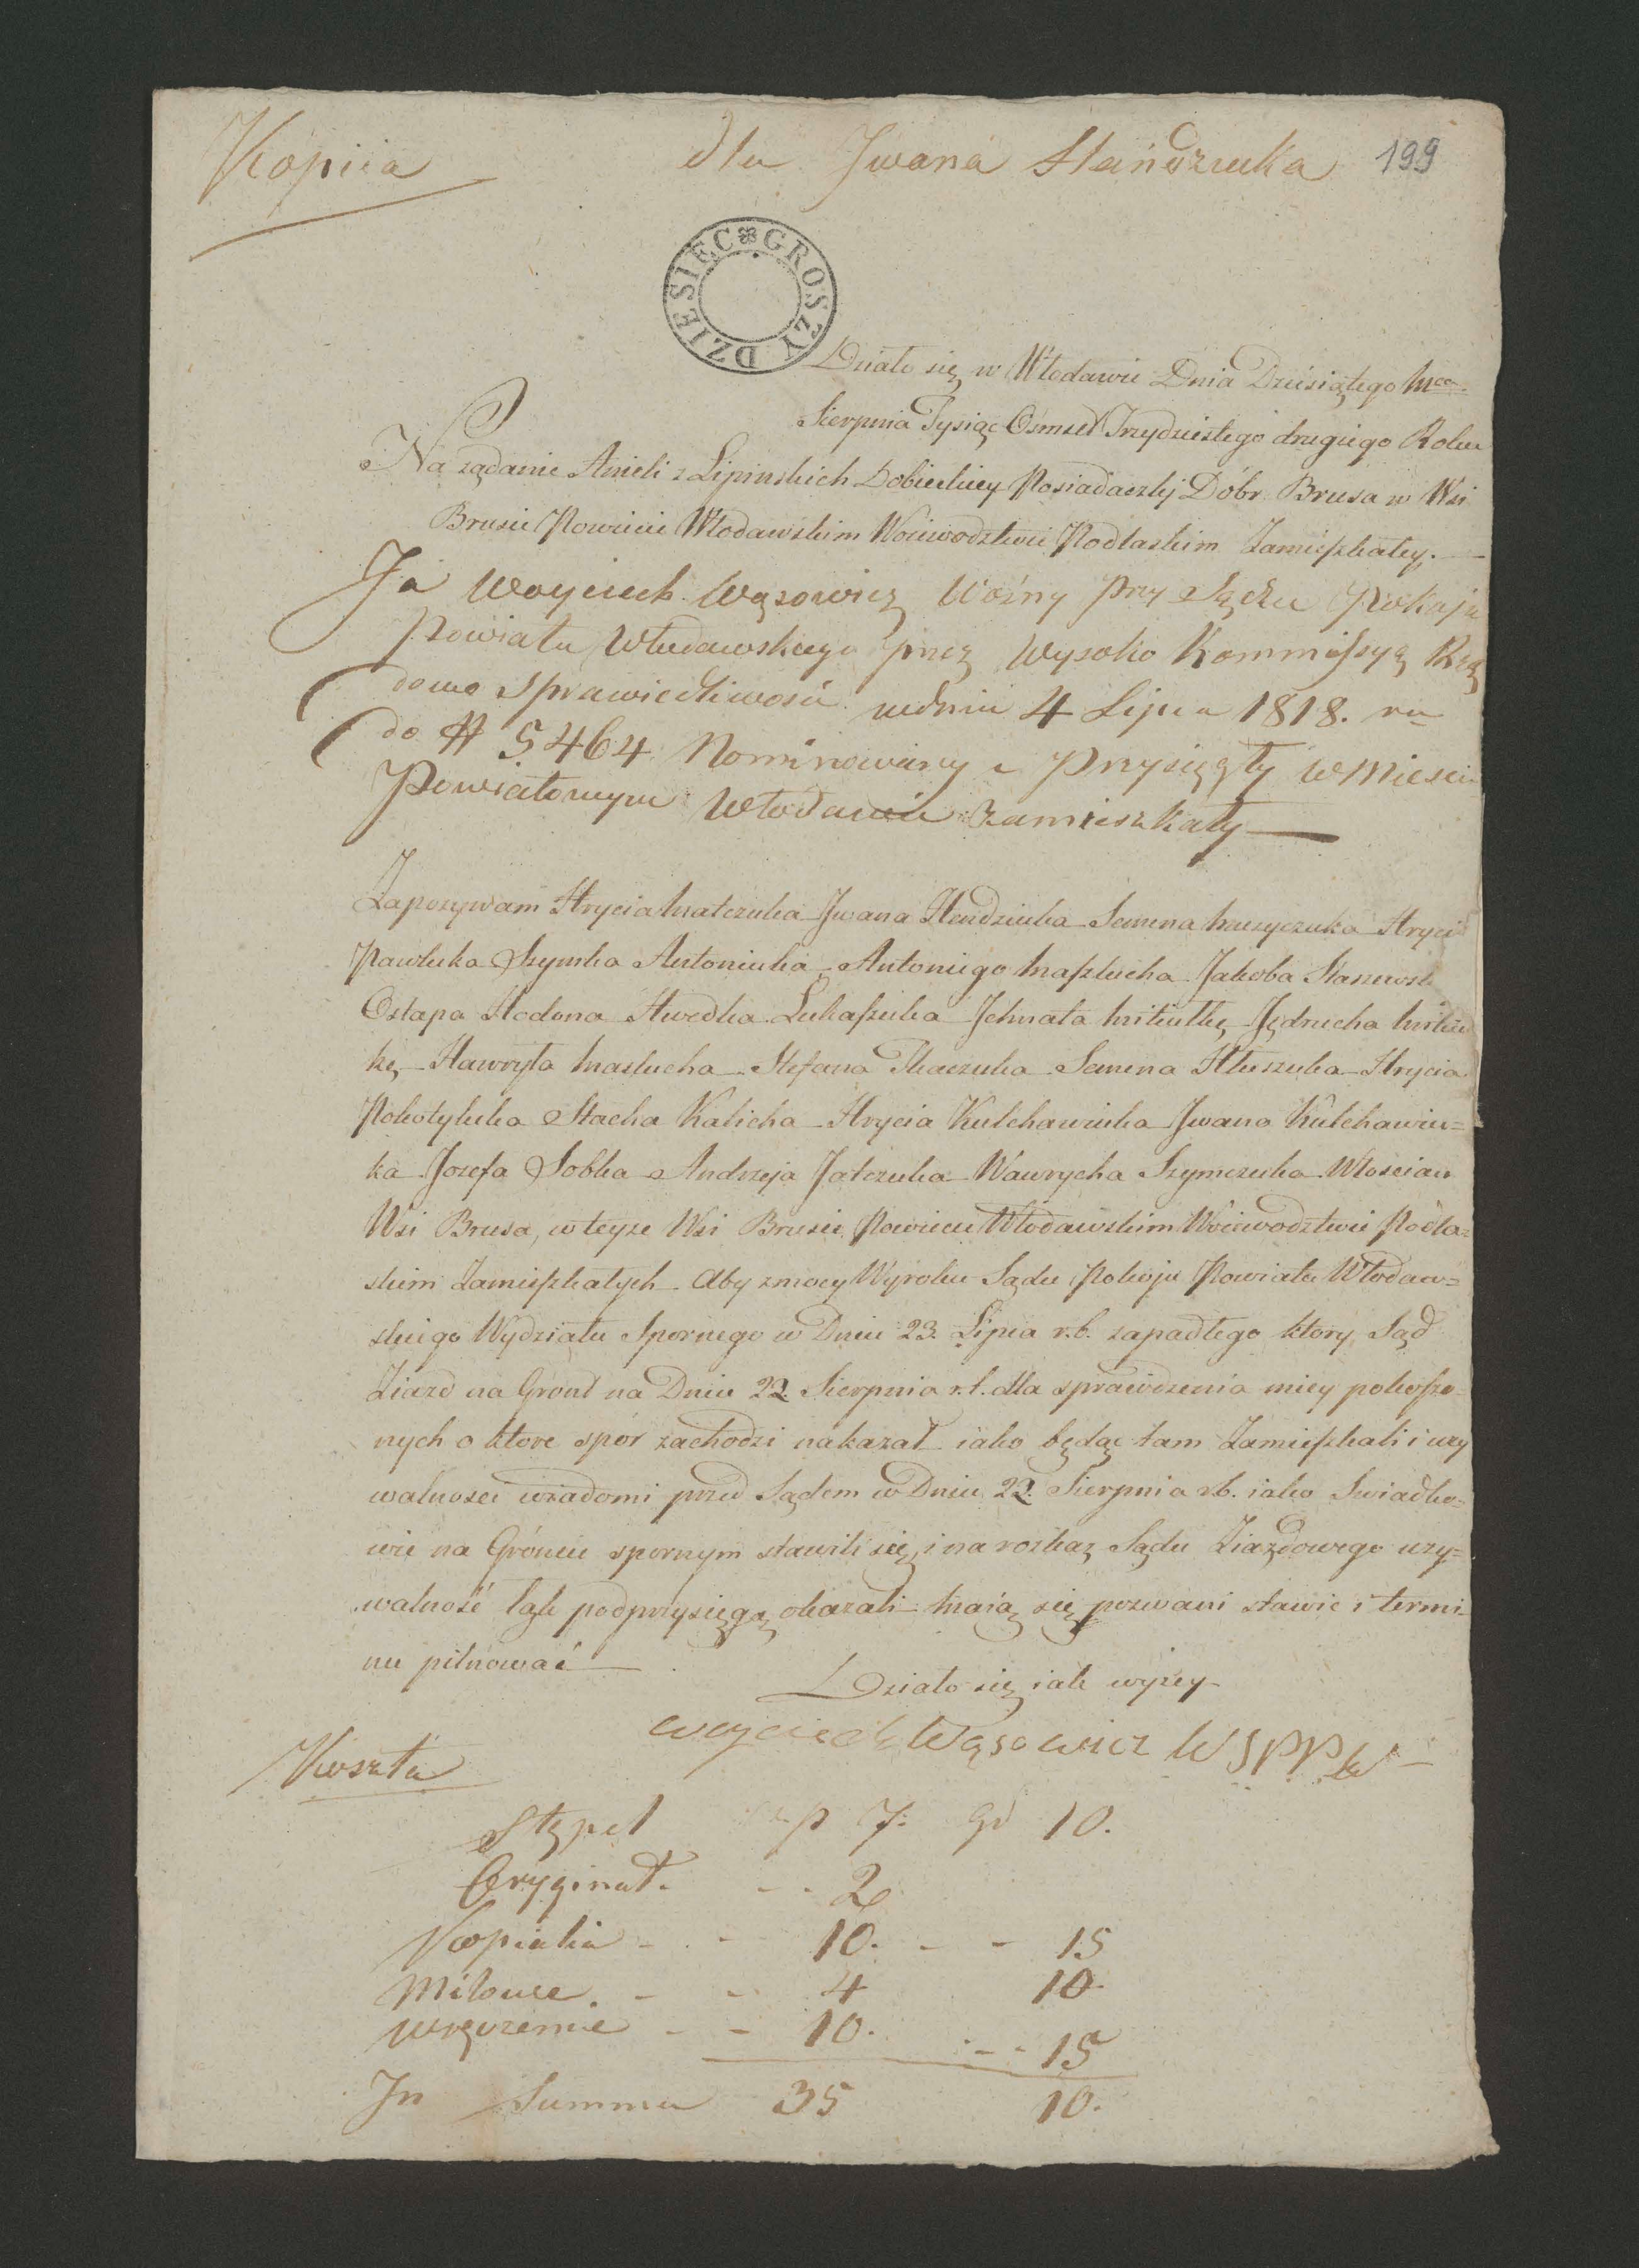 Kopiia dla Jwana Hańdziuka 199
DZIESIĘC GROSZY
Działo się w Włodawie Dnia Dziesiątego Mca
Sierpnia Tysiąc Ośmset Trzydziestego drugiego Roku
Na ządanie Anieli z Lipinskich Dobieckiey Posiadaczky Dóbr Brusa w Wsi
Brusie Powiecie Włodawskim Woiewodztwie Podlaskim Zamieszkałey.
Ja Woyciech Wąsowicz Woźny przy Sądzu Pokoju
Powiatu Włodawskiego przez Wysoko Kommissyą Rzą
dowo Sprawiedliwosci wdniu 4 Lipca 1818. ru
do # 5464 Nominowany i Przysięgły w Miescie
Powiatowym Włodawie zamieszkały
Zapozywam Hrycia Matczuka Jwana Hendziuka Semena Maczyczuka Hrycia
Pawluka Szymka Antoniuka Antoniego Maszlucha Jakoba Stanewsk
Ostapa Hodona Awedka Lukaszuka Jchnata Mitiutkę Jędrucha Mitiut
kę Hawryła Maslucha Stefana Tkaczuka Semena Hluszuka Hrycia
Pokotyluka Stacha Kalicha Hrycia Kulchawiuka Jwana Kulchawiu=
ka Jozefa Sobka Andrzeja Jatczuka Wawrycha Szymczuka Włoscian
Wsi Brusa, w teyze Wsi Brusie Powiecie Włodawskim Woiewodztwie Podla=
skim Zamieszkałych. Aby zmocy Wyroku Sądu Pokoju Powiatu Włodaw=
skiego Wydziału Spornego w Dniu 23. Lipca r.b. zapadłego ktory Sąd
Ziazd na Gront na Dniu 22. Sierpnia r.b. dla sprawdzenia miey pokoszo=
nych o ktore spór zachodzi nakazał iako będąc tam Zamieszkali i uzy
walnosci wiadomi przed Sądem w Dniu 22. Sierpnia r.b. iako Swiadko=
wie na Gróncie spornym stawili się, i na rozkaz Sądu Ziazdowego uzy=
walność łąk pod przysięgą okazali. Maią się pozwani stawic i termi=
nu pilnować
Działo się iak wyzey
Woyciech Wąsowicz W S P P W
Koszta
Stępel zp 7. gr 10.
Oryginał. 2
Kopialia 10. 15
Milowe. 4 10.
Wręczenie 10. 15
Jn Summa 35 10.